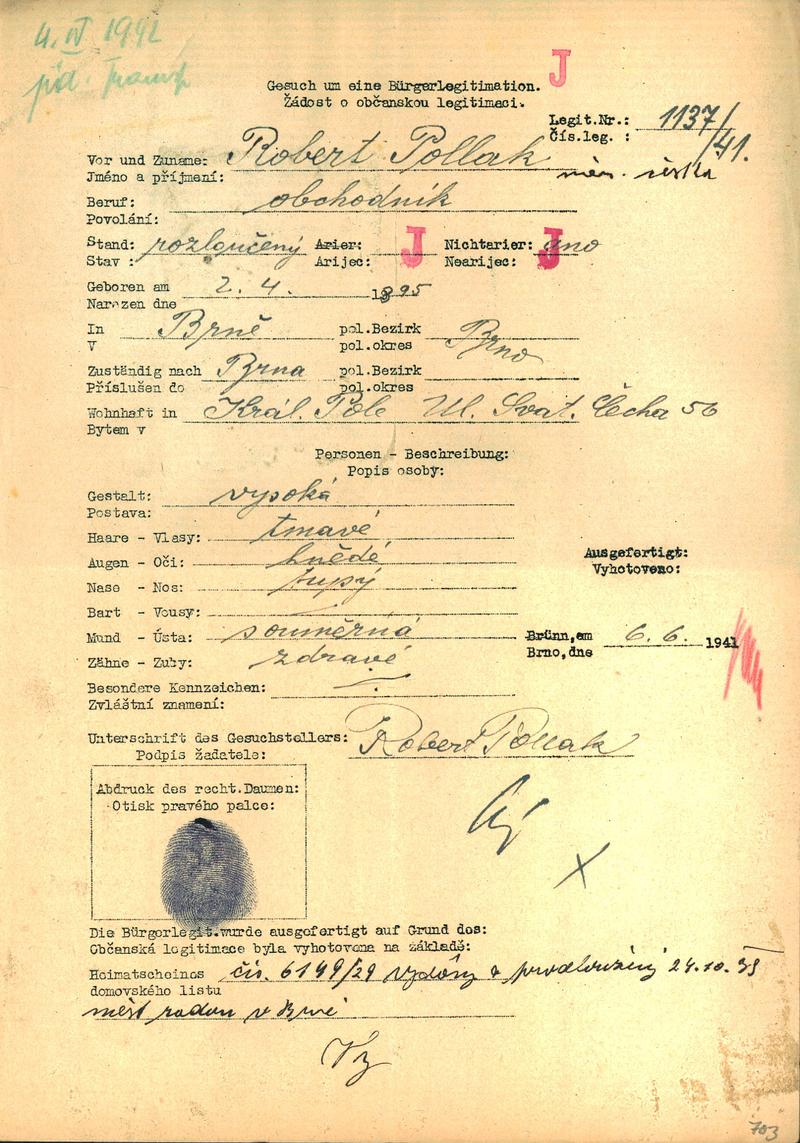 4. IV 1942
J
Gesuch um eine Bürgerlegitimation.
Žádost o občanskou legitimaci.
Legit.Nr.: 1137/41.
Čís.leg. :
Vor und Zuname: Robert Pollak
Jméno a příjmení:
Beruf: obchodník
Povolání:
Stand: rozloučený Arier: J Nichtarier: ano J
Stav : Arijec: Nearijec:
Geboren am 2. 4. 1895
Narozen dne
In Brně pol.Bezirk Brno
V pol.okres
Zuständig nach Brna pol.Bezirk
Příslušen do pol.okres
Wohnhaft in Král. Pole Ul. Svat. Čecha 56
Bytem v
Personen - Beschreibung:
Popis osoby:
Gestalt: vysoká
Postava:
Haare - Vlasy: tmavé
Augen - Oči: hnědé
Ausgefertigt:
Vyhotoveno:
Nase - Nos: tupý
Bart - Vousy:
Mund - Ústa: souměrná
Brünn,am 6. 6. 1941
Brno,dne
Zähne - Zuby: zdravé
Besondere Kennzeichen:
Zvláštní znamení:
Unterschrift des Gesuchstellers: Robert Pollak
Podpis žadatele:
Abdruck des recht.Daumen:
Otisk pravého palce:
X
Die Bürgerlegit.wurde ausgefertigt auf Grund des:
Občanská legitimace byla vyhotovena na základě:
Heimatscheines čís. 6149/29 vydaný a prodloužený 24.10.35
domovského listu
měst radou v Brně
703